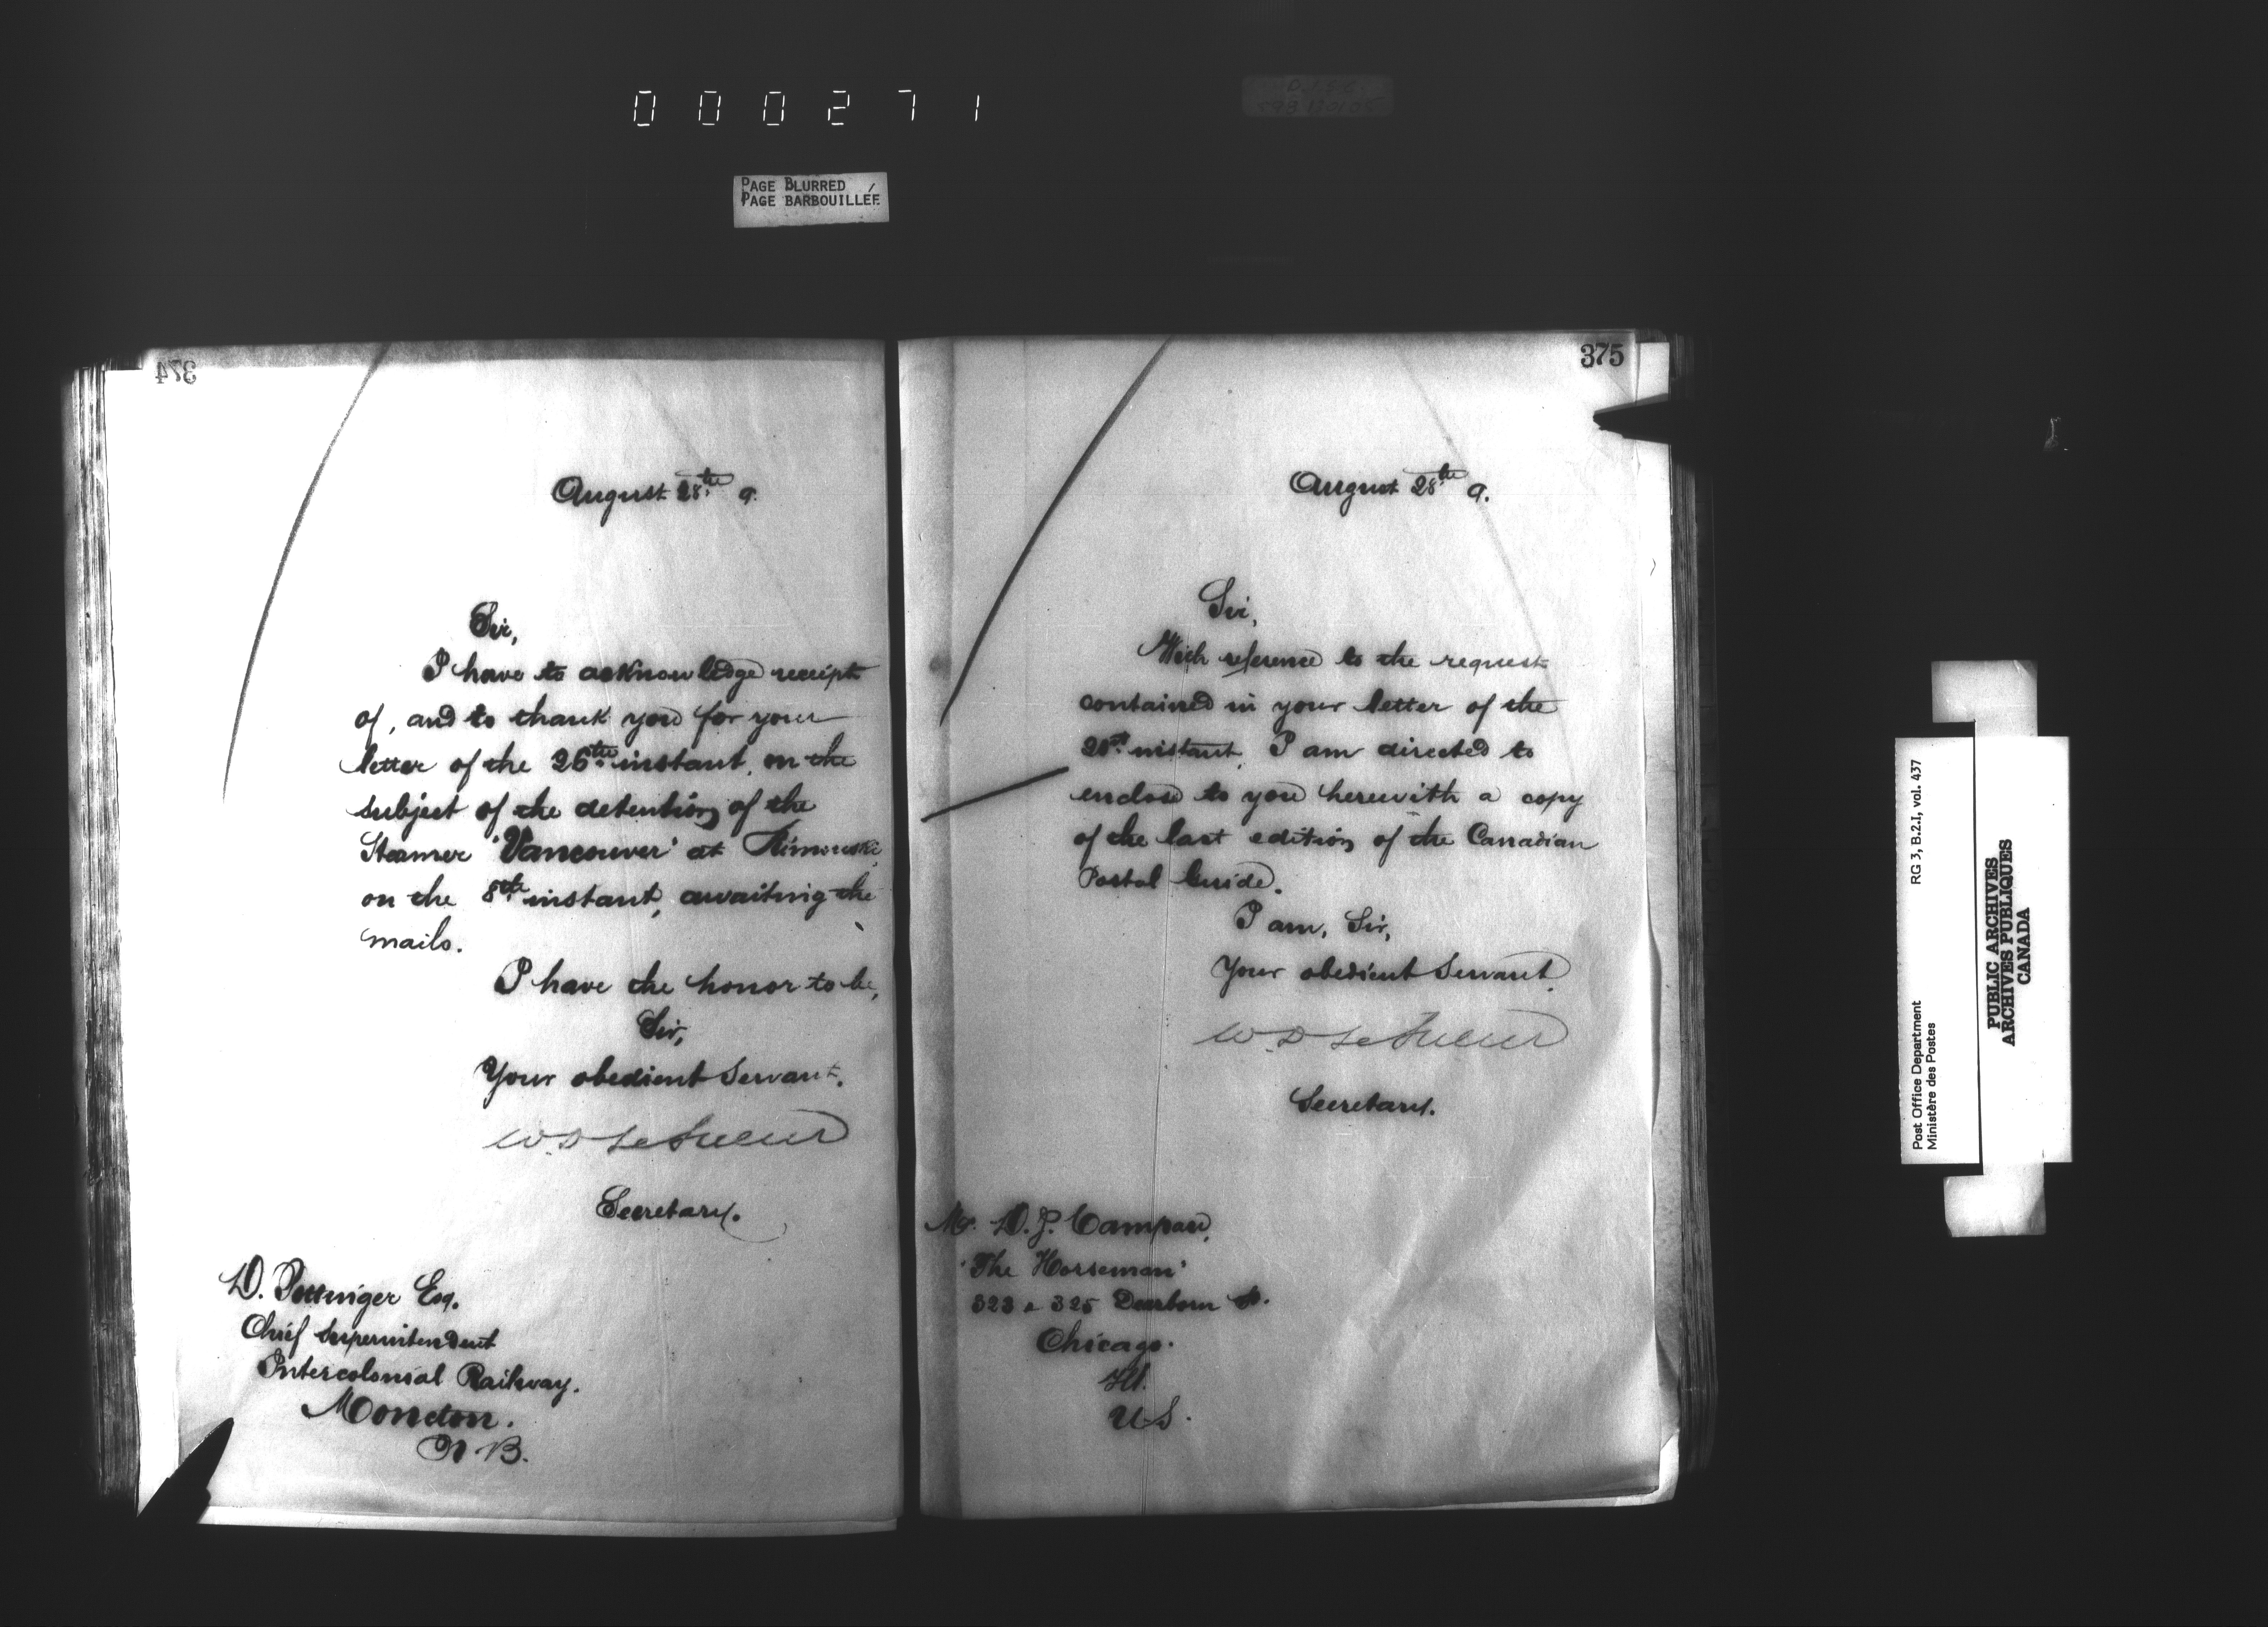 000271
PAGE BLURRED
PAGE BARBOUILLÉE
374
August 28th 9.
Sir,
I have to acknowledge receipt
of, and to thank you for your
letter of the 26th instant, on the
subject of the detention of the
Steamer 'Vancouver' at Rimouski,
on the 8th instant, awaiting the
mails.
I have the honor to be,
Sir,
Your obedient Servant.
W D LeSueur
Secretary.
D. Pottinger Esq.
Chief Superintendent
Intercolonial Railway.
Moncton.
N.B.
375
August 28th 9.
Sir,
With reference to the request
contained in your letter of the
instant, I am directed to
enclose to you herewith a copy
of the last edition of the Canadian
Postal Guide.
I am, Sir,
Your obedient Servant.
W. D LeSueur
Secretary.
Mr. D. J. Campau,
'The Horseman'
323 & 325 Dearborn St.
Chicago.
Ill.
U.S.
Post Office Department
Ministère des Postes
RG 3, B.2.I, vol. 437
PUBLIC ARCHIVES
ARCHIVES PUBLIQUES
CANADA